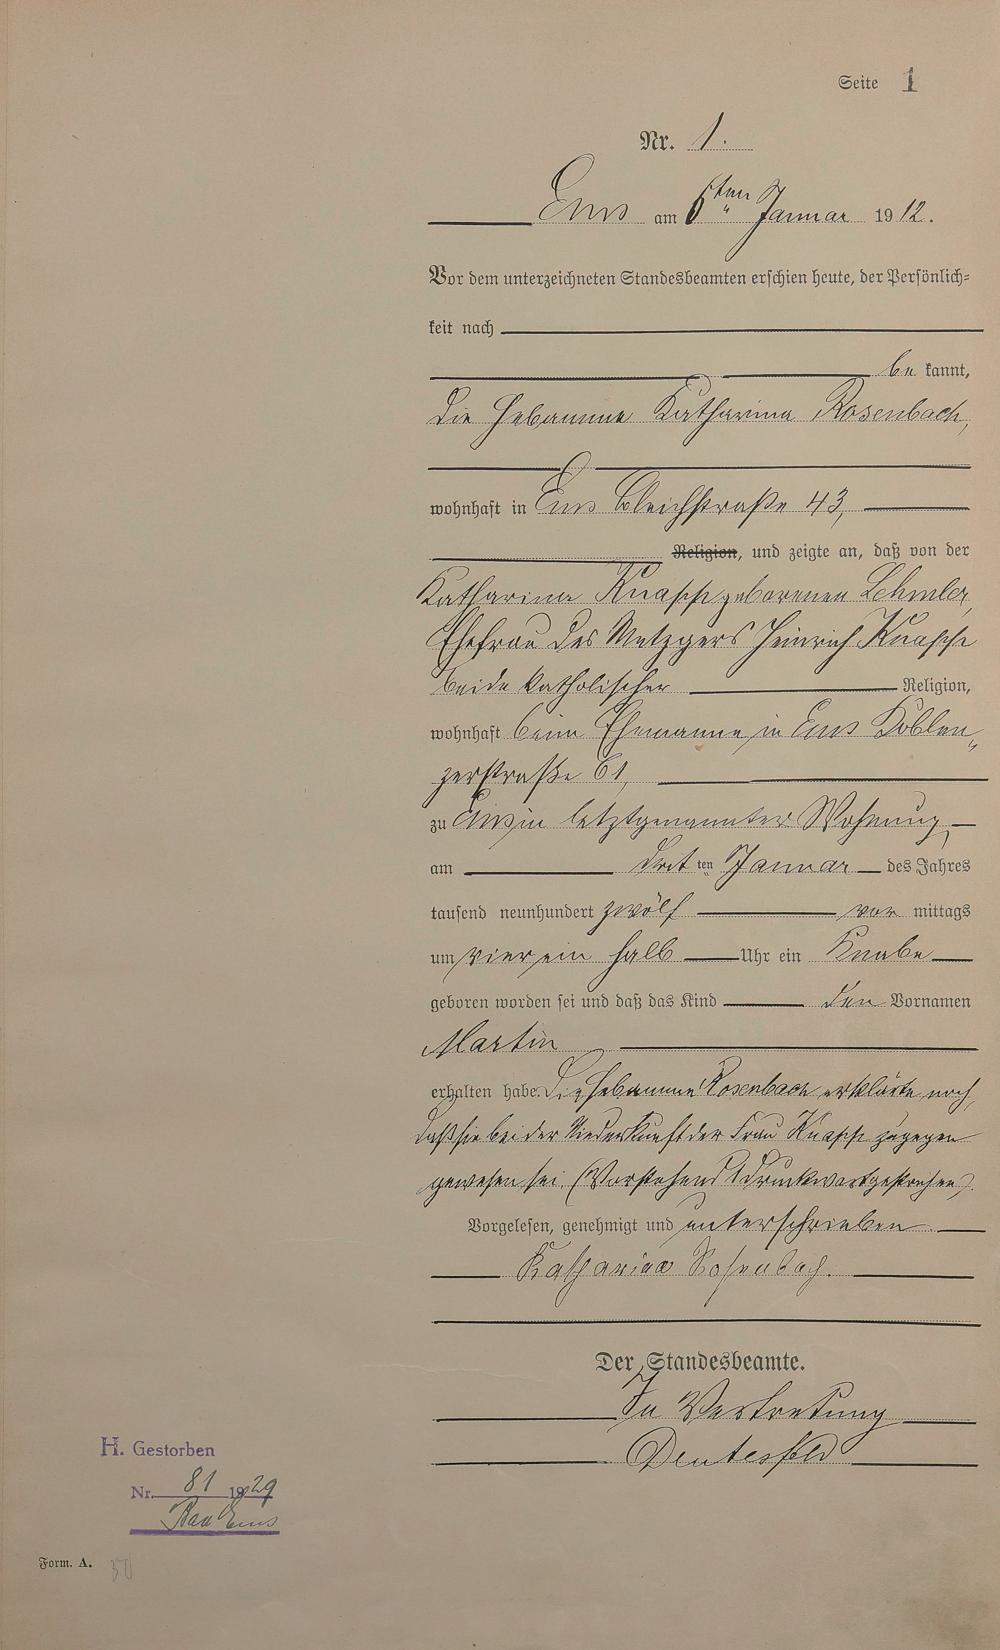 Seite 1
Nr. 1.
Ems am 6ten Januar 1912.
Vor dem unterzeichneten Standesbeamten erschien heute, der Persönlich-
keit nach
be kannt,
die Hebamme Katharina Rosenbach,
wohnhaft in Ems Bleichstraße 43,
Religion, und zeigte an, daß von der
Katharina Knapp geborenen Lehmler,
Ehefrau des Metzgers Heinrich Knapp
beide katholischer Religion,
wohnhaft beim Ehemanne in Ems Koblen„
zerstraße 61,
zu Ems in letztgenannter Wohnung,
am drit ten Januar des Jahres
tausend neunhundert zwölf vor mittags
um vier ein halb Uhr ein Knabe
geboren worden sei und daß das Kind den Vornamen
Martin
erhalten habe. Die Hebamme Rosenbach erklärte noch,
daß sie bei der Niederkunft der Frau Knapp zugegen
gewesen sei. (Vorstehend 1 Druckwort gestrichen).
Vorgelesen, genehmigt und unterschrieben
Katharina Rosenbach.
Der Standesbeamte.
In Vertretung
H. Gestorben
Nr. 81 1929
Bad Ems
Form. A.